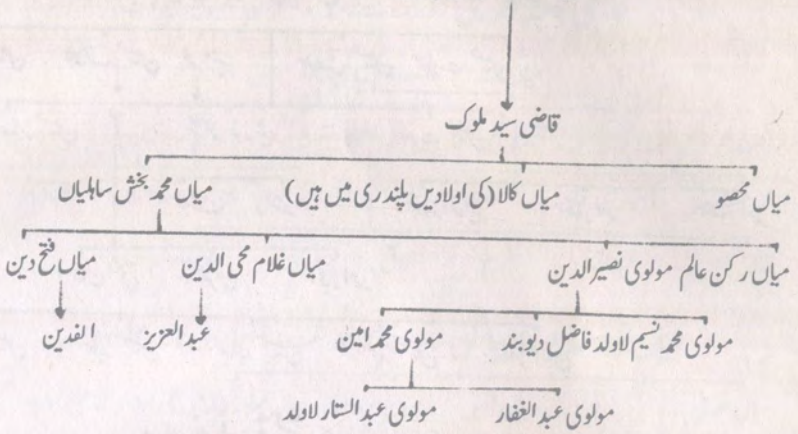 قاضی سید ملوک
میاں محصو میاں کالا (کی اولادیں پلندری میں ہیں) میاں محمد بخش ساہلیاں
میاں رکن عالم مولوی نصیر الدین میاں غلام محی الدین میاں فتح دین
مولوی محمد نسیم لاولد فاضل دیوبند مولوی محمد امین عبد العزیز الفدین
مولوی عبد الغفار مولوی عبد الستار لاولد